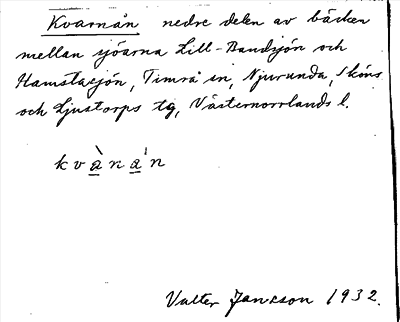 Kvarnån nedre delen av bäcken
mellan sjöarna Lill-Bandsjön och
Hamstasjön, Timrå sn, Njurunda, Sköns
och Ljustorps tg, Västernorrlands l.
kvànán
Valter Jansson 1932.